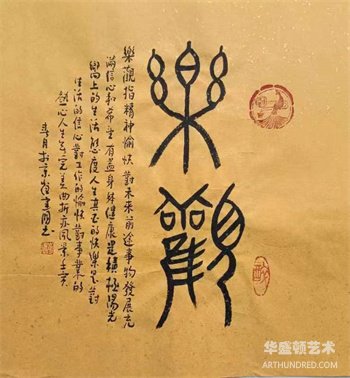 樂觀
樂觀指精神愉快對未來前途事物發展充
滿信心和希望有益身体健康是積極陽光
向上的生活態度人生真正的快樂是對
生活的信心對工作的愉快對事業的
人生完美曲折亦風景
月於京書
华盛顿艺术
ARTHUNDRED.COM